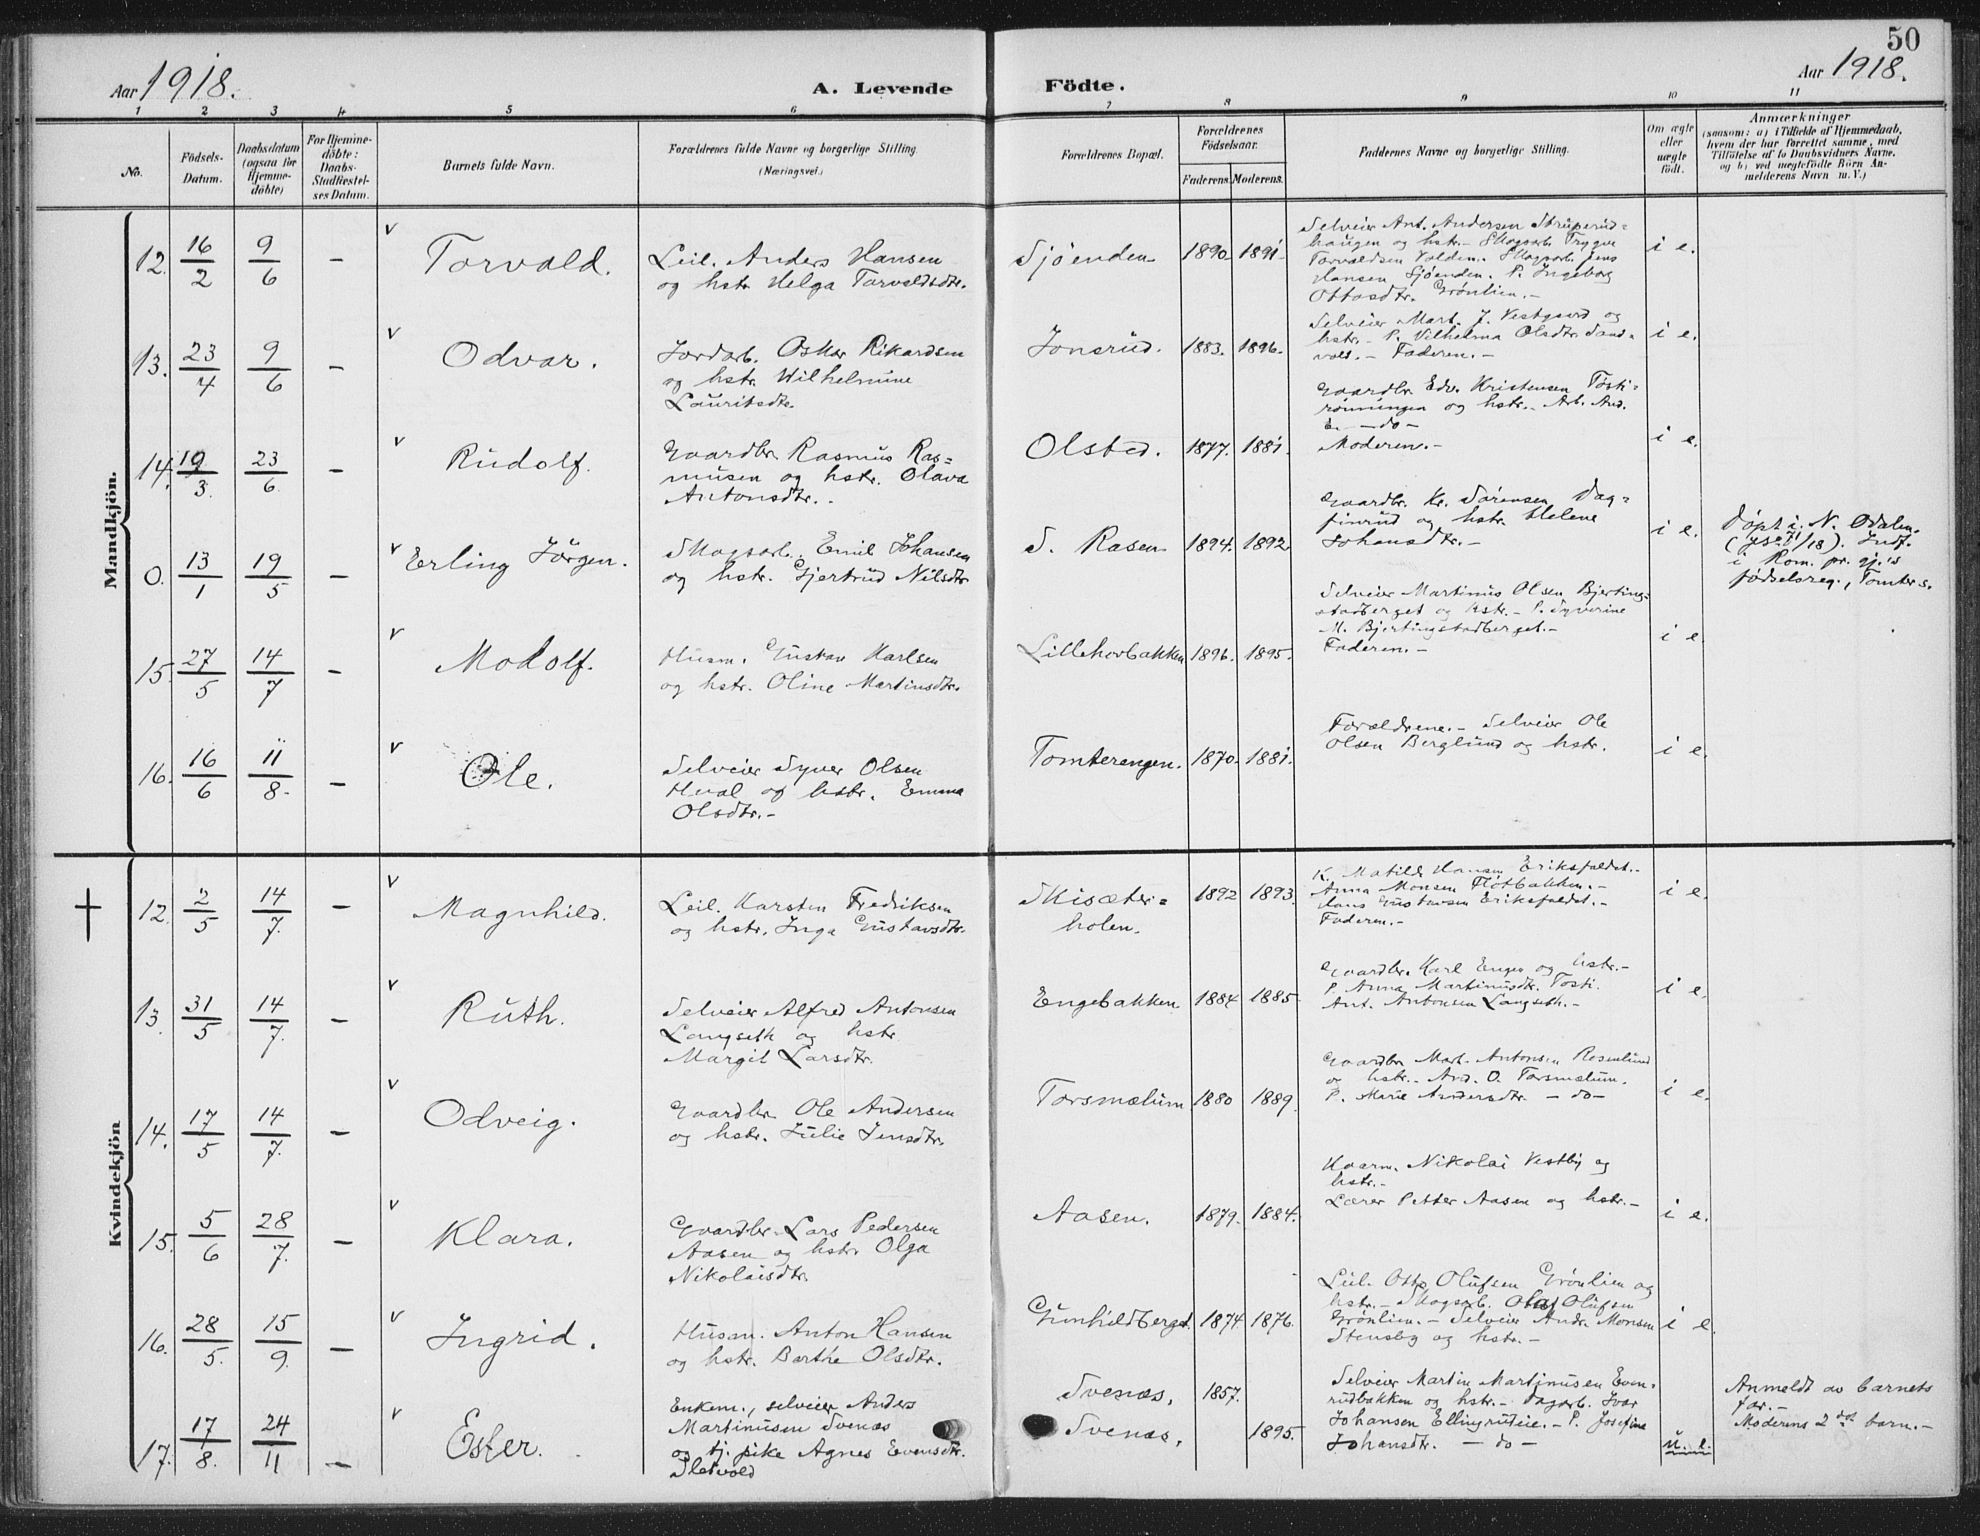 50
Aar 1918.
A. Levende
Födte.
Aar 1918.
1 2 3 4 5 6 7 8 9 10 11
No.
Födsels-
Datum.
Daabsdatum
(ogsaa for
Hjemme-
döbte)
For Hjemme-
döbte:
Daabs-
Stadfæstel-
ses Datum.
Barnets fulde Navn.
Forældrenes fulde Navne og borgerlige Stilling.
(Næringsvei.)
Forældrenes Bopæl.
Forældrenes
Födselsaar.
Faderens. Moderens.
Faddernes Navne og borgerlige Stilling.
Om ægte
eller
uægte
födt.
Anmærkninger
(saasom: a) i Tilfælde af Hjemmedaab,
hvem der har forrettet samme, med
Tilföielse af to Daabsvidners Navne,
og b) ved uægtefödte Börn An-
melderens Navn m. V.)
Mandkjön.
12. 16/2 9/6 – v Torvald.
Leil. Anders Hansen
og hstr. Helga Torvaldsdtr.
Sjøenden 1890 1891
Selveier Ant. Andersen Struperud-
haugen og hstr. – Skogsarb. Trygve
Torvaldsen Volden. Skogsarb. Jens
Hansen Sjøenden. P. Ingeborg
Ottosdtr. Grønlien. –
i e.
13. 23/4 9/6 – v Odvar.
Jordarb. Oskar Rikardsen
og hstr. Wilhelmine
Lauritsdtr.
Jonsrud. 1883. 1896.
Selveier Mart. J. Vestgard og
hstr. – P. Vilhelma Olsdtr. Sand-
vold. – Faderen. –
i e.
14. 19/3. 23/6 – v Rudolf.
Gaardbr. Rasmus Ras=
musen og hstr. Olava
Antonsdtr. –
Olsted. 1877. 1881.
Gaardbr. Edv. Kristensen Tosti-
rønningen og hstr. – Arb. And.
E. – do –
Moderen. –
i e.
0. 13/1 19/5 – v Erling Jörgen.
Skogsarb. Emil Johansen
og hstr. Gjertrud Nilsdtr.
S. Rasen 1894. 1892
Gaardbr. Kr. Sörensen Dag=
finrud og hstr. Helene
Johansdtr. –
i e.
Döpt i N. Odalen.
i Rom. pr. gj.'s
födselsreg., Tomter s.
15. 27/5 14/7 – v Modolf.
Husm. Gustav Karlsen
og hstr. Oline Martinsdtr.
Lillehovbakken 1896. 1895.
Selveier Martinus Olsen Bjerting-
stadberget og hstr. – P. Syverine
M. Bjertingstadberget. –
Faderen. –
i e
16. 16/6 11/8. – v Ole.
Selveier Syver Olsen
Hval og hstr. Emma
Olsdtr. –
Tomterengen. 1870. 1881.
Forældrene. – Selveier Ole
Olsen Berglund og hstr.
i e.
Kvindekjön
12. 2/5 14/7. – v Magnhild.
Leil. Karsten Fredriksen
og hstr. Inga Gustavsdtr.
Skisæter=
holen. 1892 1893.
K. Matilde Hansen Eriksfaldet. –
Anna Monsen Fløtbakken. –
Hans Gustavsen Eriksfaldet. –
Faderen. –
i e.
13. 31/5 14/7. – v Ruth.
Selveier Alfred Antonsen
Langseth og hstr
Margit Larsdtr.
Engebakken 1884 1885
Gaardbr. Karl Engen og hstr. –
P. Anna Martinusdtr. Tosti.
Ant. Antonsen Langseth. –
i e.
14. 17/5 14/7. – v Odveig.
Gaardbr. Ole Andersen
og hstr. Julie Jensdtr.
Torsmælum 1880 1889.
Gaardbr Mart. Antonsen Rosenlund
og hstr. – And. O. Torsmælum.
P. Marie Andersdtr – do –
i e.
15. 5/6 28/7. – v Klara.
Gaardbr. Lars Pedersen
Aasen og hstr. Olga
Nikolaisdtr.
Aasen. 1879. 1884.
Kaarm. Nikolai Vestby og
hstr. –
Lærer Petter Aasen og hstr. –
i e.
16. 28/5. 15/9. – v Ingrid.
Husm. Anton Hansen
og hstr. Barthe Olsdtr.
Gunhildberget. 1874 1876.
Leil. Otto Olufsen Grønlien og
hstr. – Skogsarb. Olaf Olufsen
Grønlien. – Selveier Andr. Monsen
Stensby og hstr. –
i e.
17. 17/8. 24/11 – v Ester.
Enkem., selveier Anders
Martinusen Svenæs
og tj. pike Agnes Evensdtr.
Sletvold
Svenæs. 1857.
Svenæs. 1895.
Selveier Martin Martinusen Even-
rudbakken og hstr. – Dagarb. Ivar
Johansen Ellingrudeie. – P. Josefine
Johansdtr. – do –
u. e.
Anmeldt av barnets
far. –
Moderens 2det barn. –